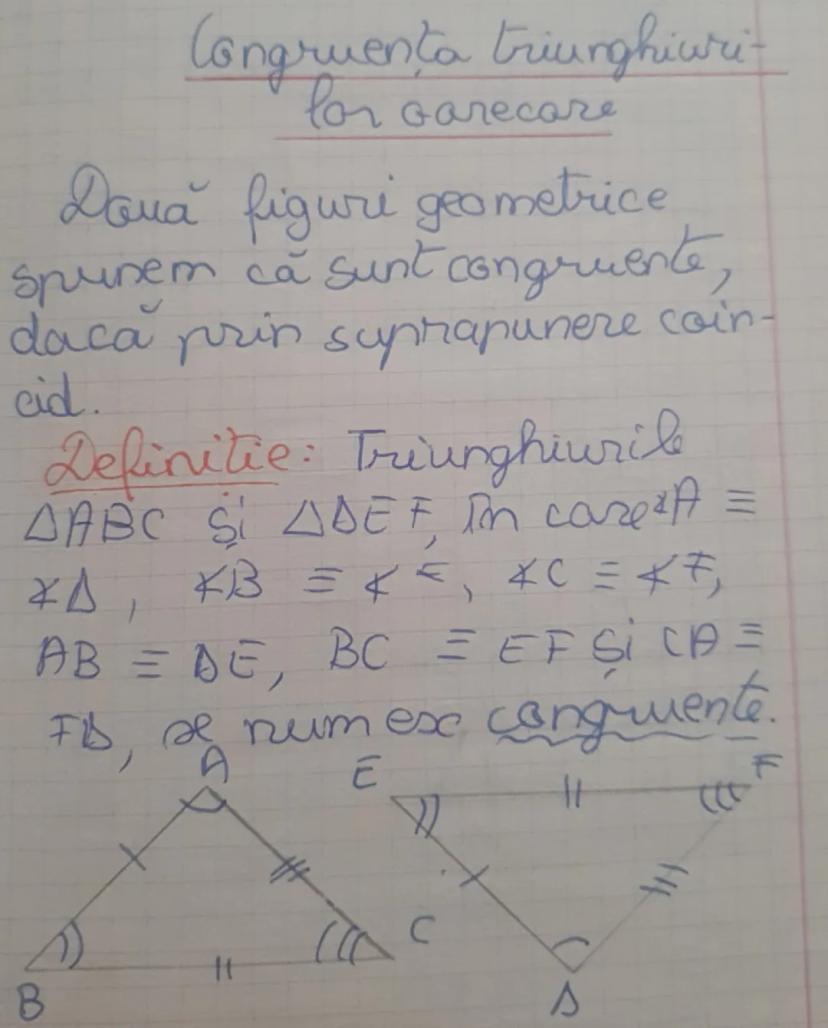 Congruența triunghiuri-
lor oarecare
Două figuri geometrice
spunem că sunt congruente,
dacă prin suprapunere coin-
cid.
Definitie: Triunghiurile
△ABC și △DEF, în care ∢A ≡
∢D, ∢B ≡ ∢E, ∢C ≡ ∢F,
AB ≡ DE, BC ≡ EF și CA ≡
FD, se numesc congruente.
A E F
C
B D